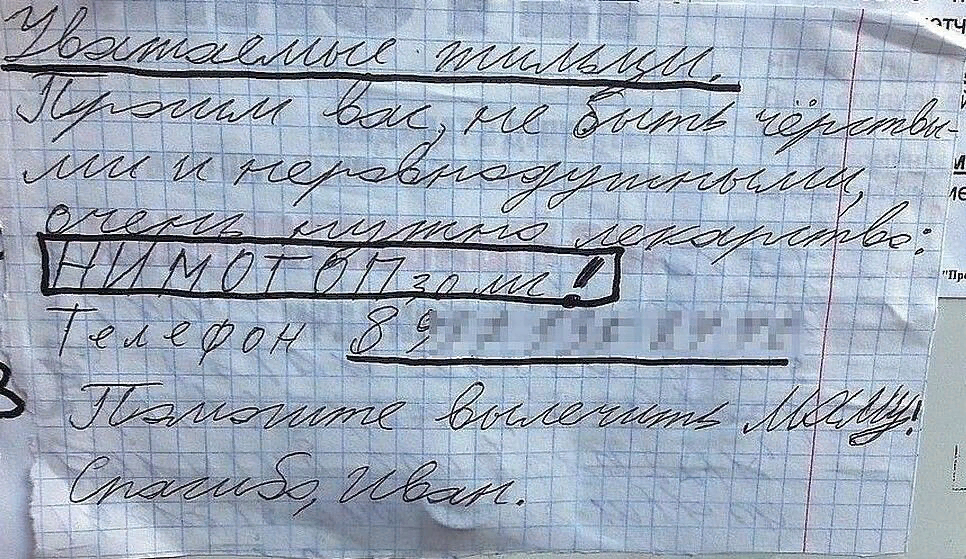 Уважаемые жильцы.
Просим вас, не быть чёрствы-
ми и неравнодушными,
очень нужно лекарство:
НИМОТОП 30 мг!
Телефон 89
Помогите вылечить маму!
Спасибо, Иван.